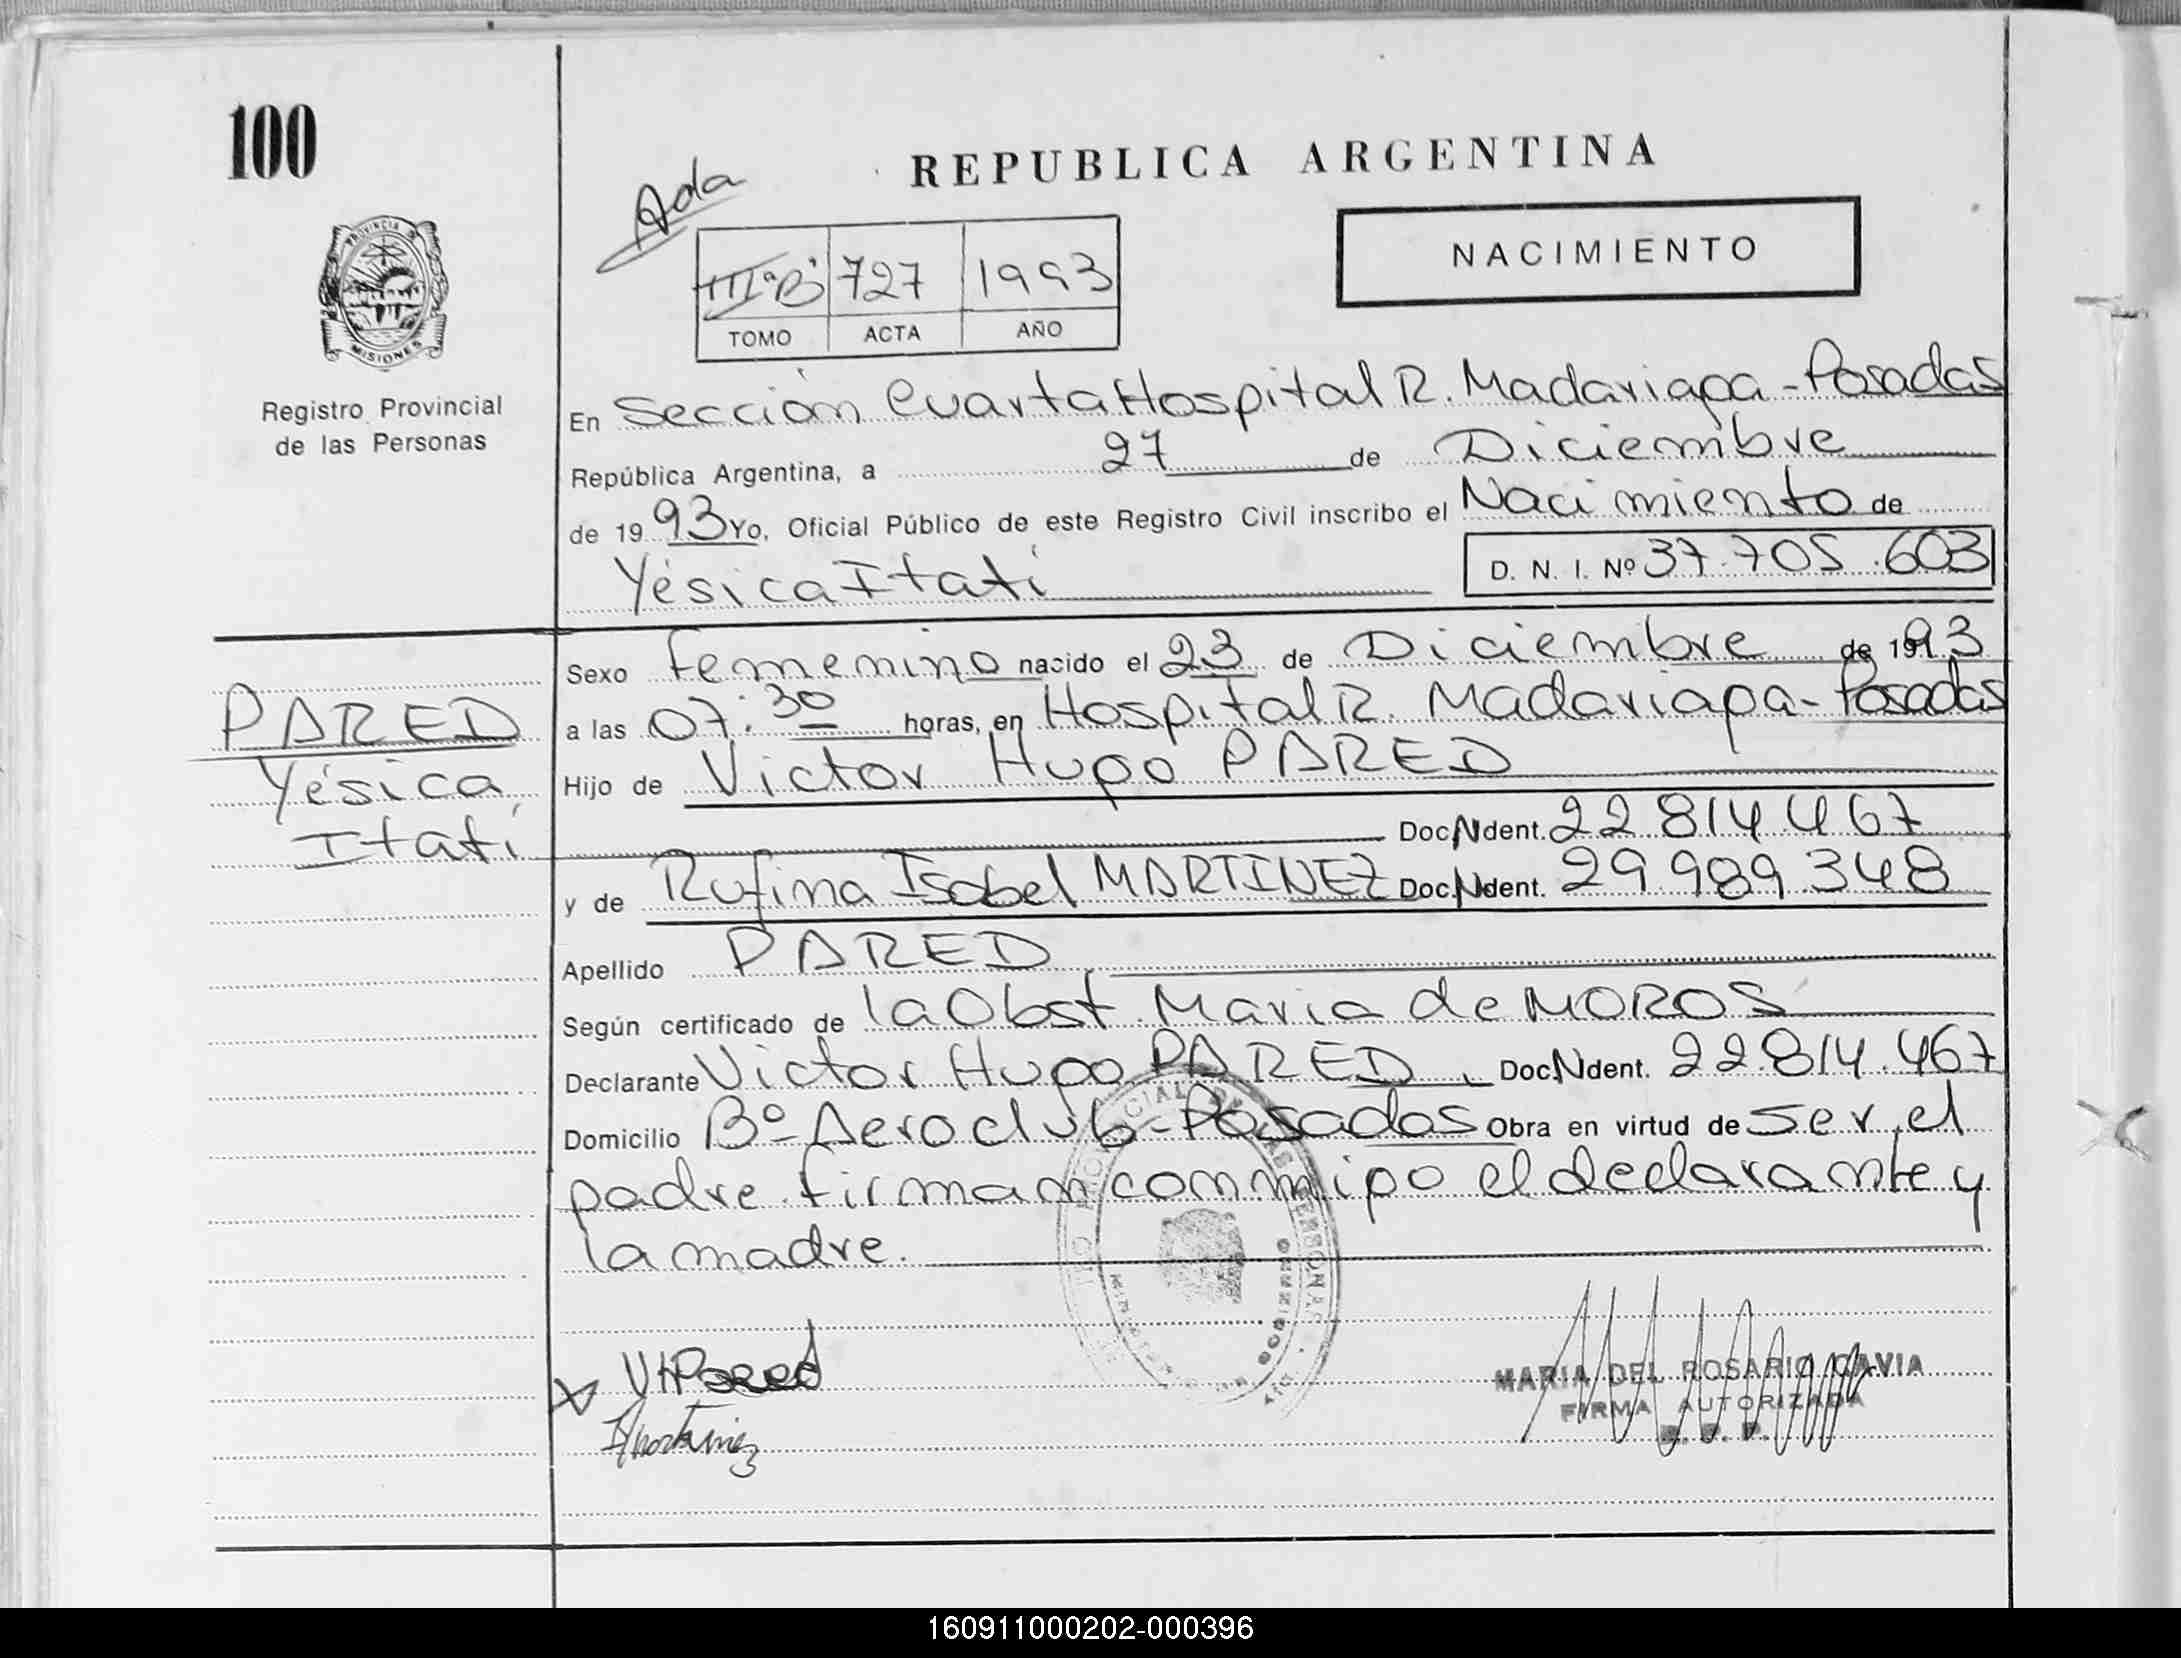 100
REPUBLICA ARGENTINA
Ada
NACIMIENTO
IIIº"B" 727 1993
TOMO ACTA AÑO
PROVINCIA DE
MISIONES
Registro Provincial
de las Personas
En Sección Cuarta Hospital R. Madariaga - Posadas
República Argentina, a 27 de Diciembre
de 1993 Yo, Oficial Público de este Registro Civil inscribo el Nacimiento de
Yésica Itatí
D. N. I. Nº 37.705.603
Sexo Femenino nacido el 23 de Diciembre de 1993
PARED
a las 07:30 horas, en Hospital R. Madariaga - Posadas
Yésica
Hijo de Victor Hugo PARED
Itatí
Doc.N.Ident. 22 814 467
y de Rufina Isabel MARTINEZ Doc.N.Ident. 29.989.348
Apellido PARED
Según certificado de la Obst. Maria de MOROS
Declarante Victor Hugo PARED, Doc.N.Ident. 22.814.467
Domicilio Bº Aeroclub - Posadas Obra en virtud de ser el
padre firman conmigo el declarante y
la madre.
VHPared
IMartinez
MARIA DEL ROSARIO GAVIA
FIRMA AUTORIZADA
160911000202-000396